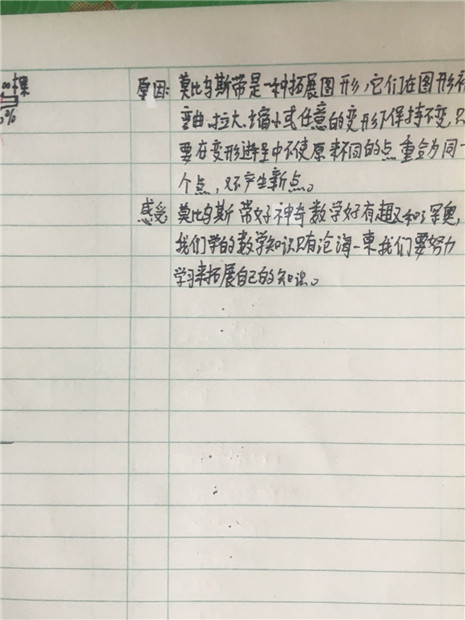 课
0%
原因: 莫比乌斯带是一种拓展图形,它们在图形被
弯曲、拉大、缩小或任意的变形下保持不变,只
要在变形过程中不使原来不同的点重合为同一
个点,又不产生新点。
感受 莫比乌斯带好神奇数学好有趣又如深奥,
我们学的数学知识只有沧海一束我们要努力
学习来拓展自己的知识。